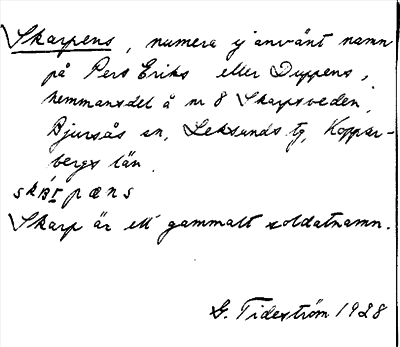 Skarpens, numera ej använt namn
på Pers Eriks eller Duppens,
hemmansdel å nr 8 Skarpsveden,
Bjursås sn, Leksands tg, Koppar-
bergs län.
Skarp är ett gammalt soldatnamn.
G. Tideström 1928